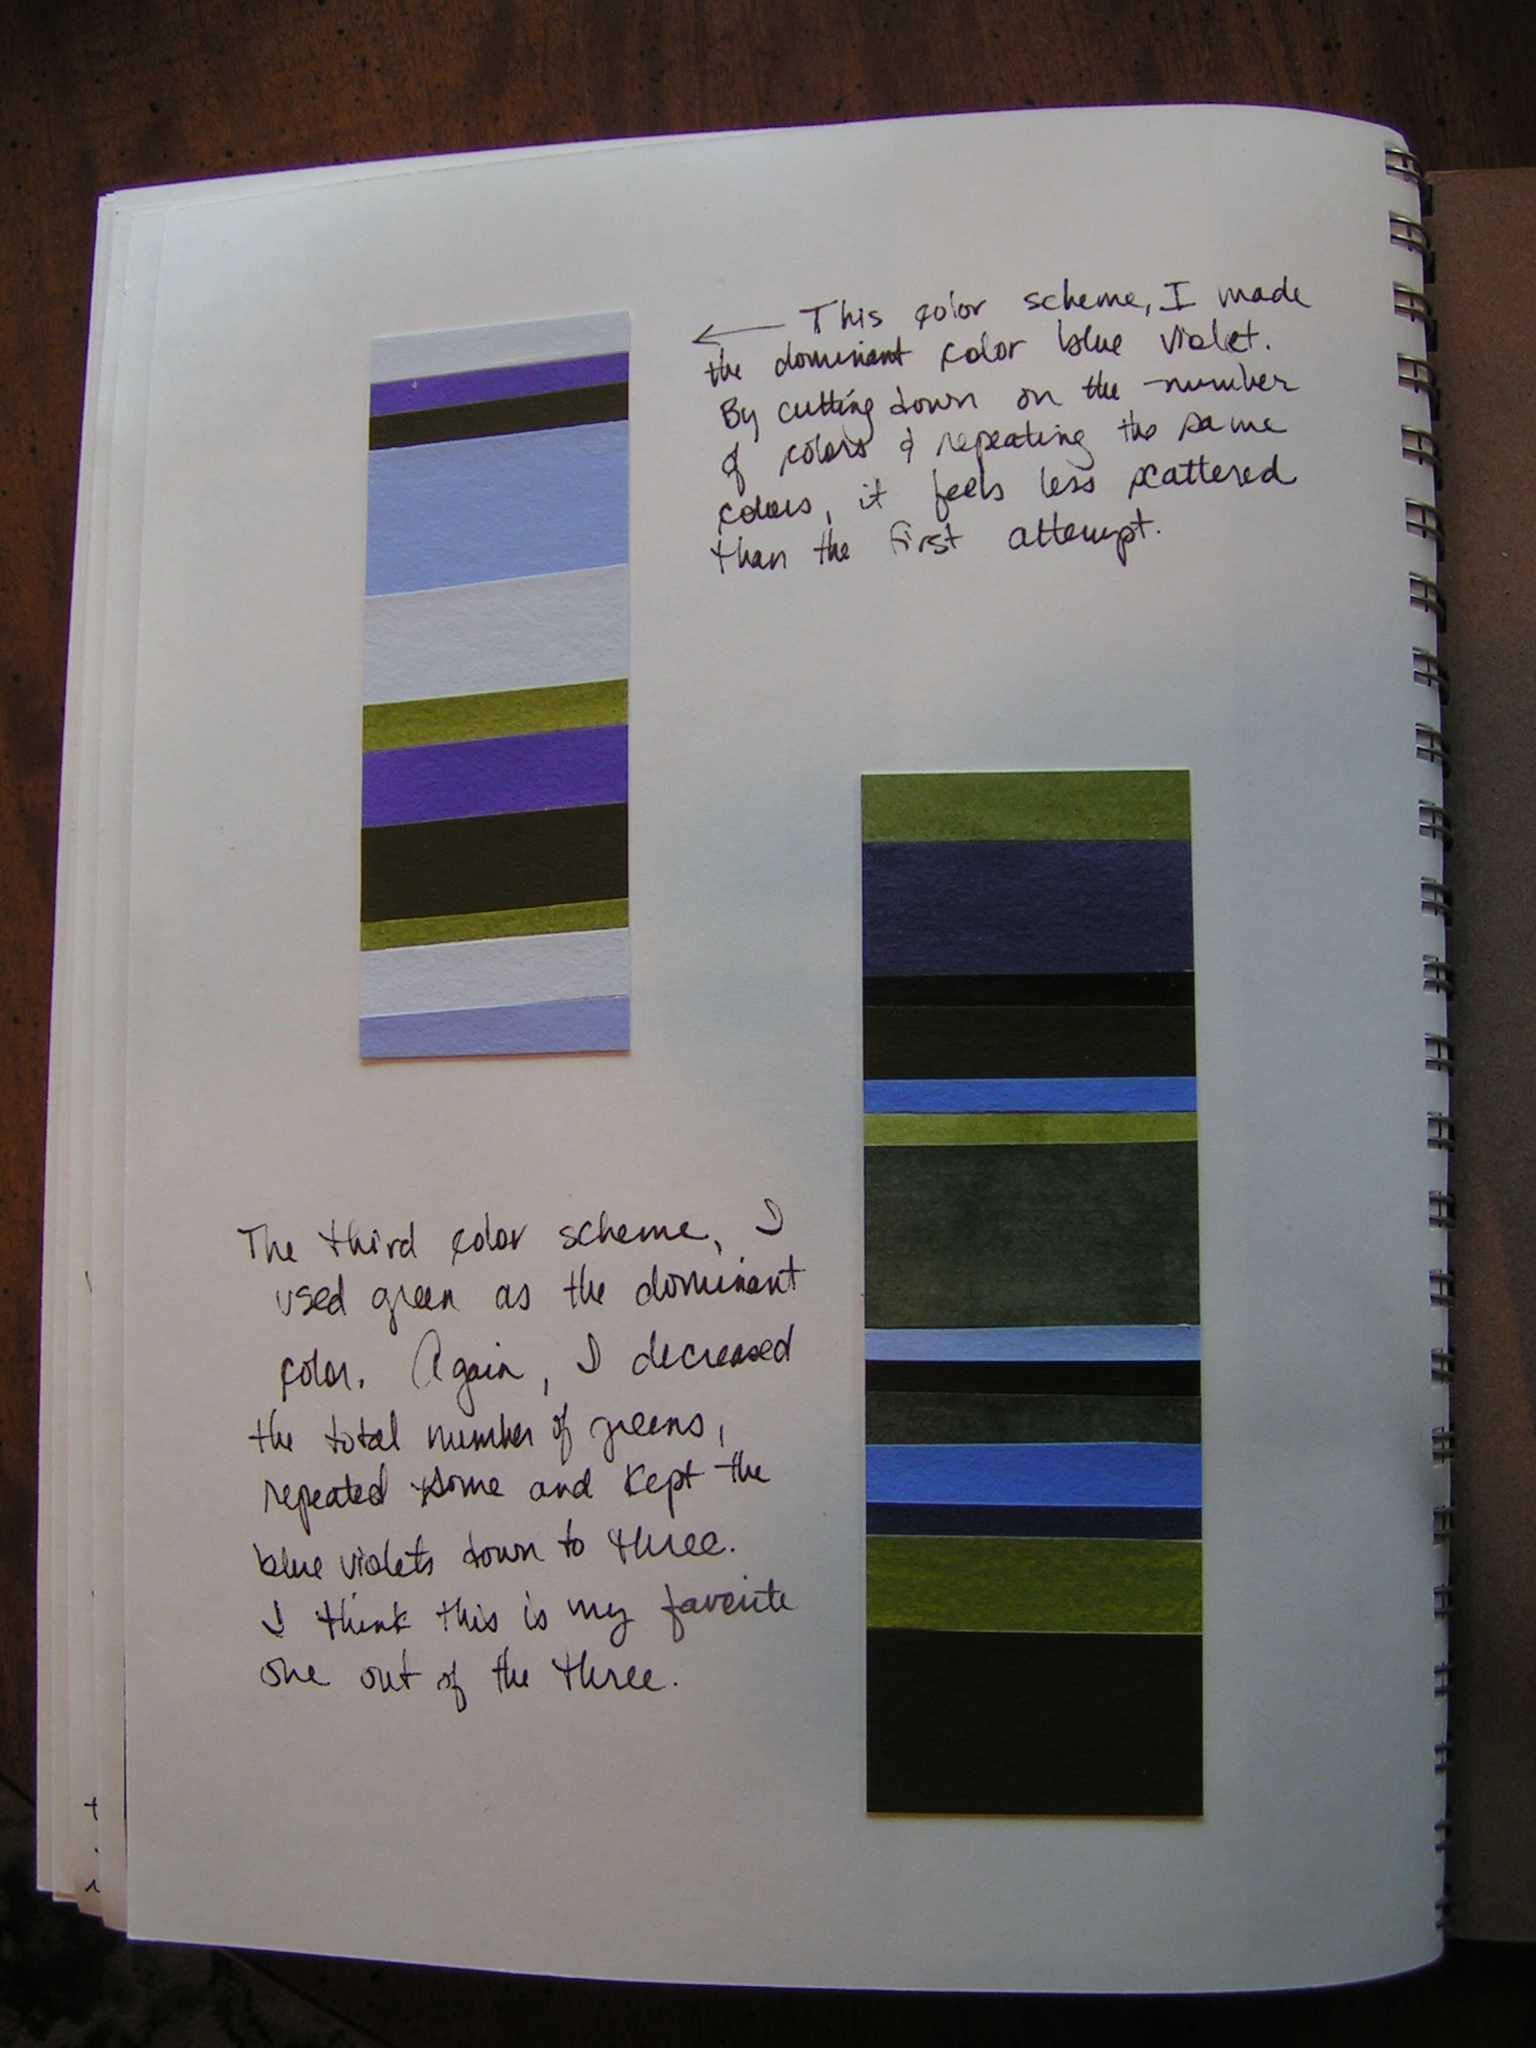 This color scheme, I made
the dominant color blue violet.
By cutting down on the number
of colors & repeating the same
colors, it feels less scattered
than the first attempt.
The third color scheme, I
used green as the dominant
color. Again, I decreased
the total number of greens,
repeated some and kept the
blue violets down to three.
I think this is my favorite
one out of the three.